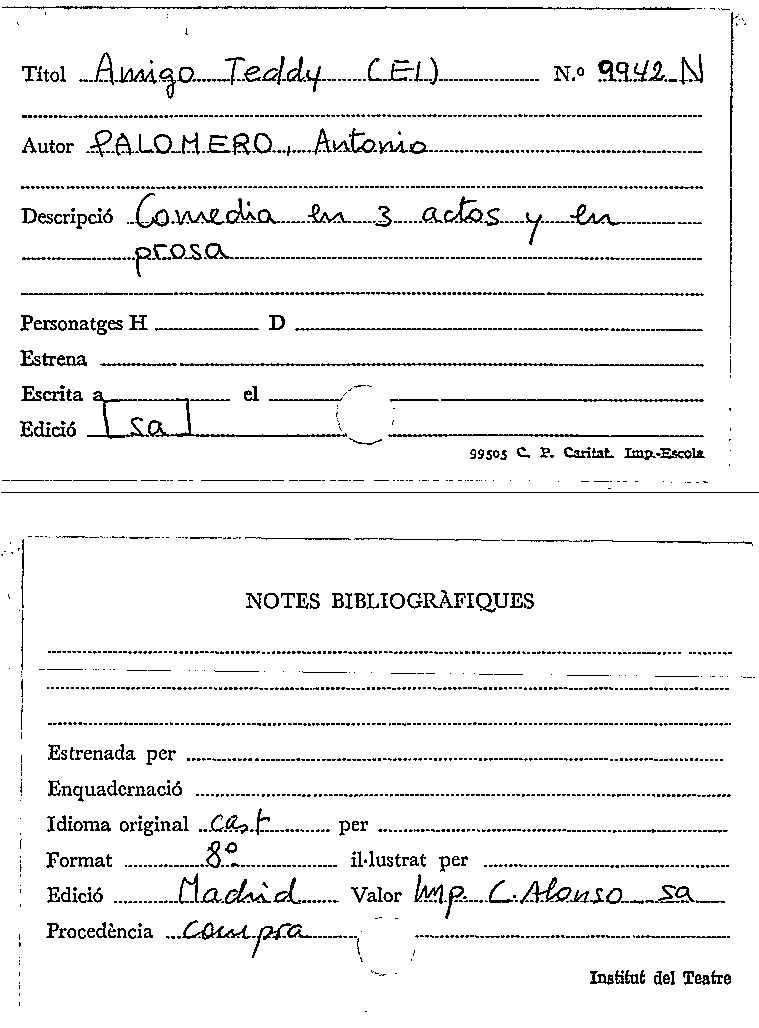 Títol Amigo Teddy (El) N.º 9942 N
Autor PALOMERO, Antonio
Descripció Comedia en 3 actos y en
prosa
Personatges H D
Estrena
Escrita a el
Edició [sa]
99505 C. P. Caritat. Imp.-Escola
NOTES BIBLIOGRÀFIQUES
Estrenada per
Enquadernació
Idioma original cast per
Format 8º il·lustrat per
Edició Madrid Valor Imp. C. Alonso sa
Procedència compra
Institut del Teatre